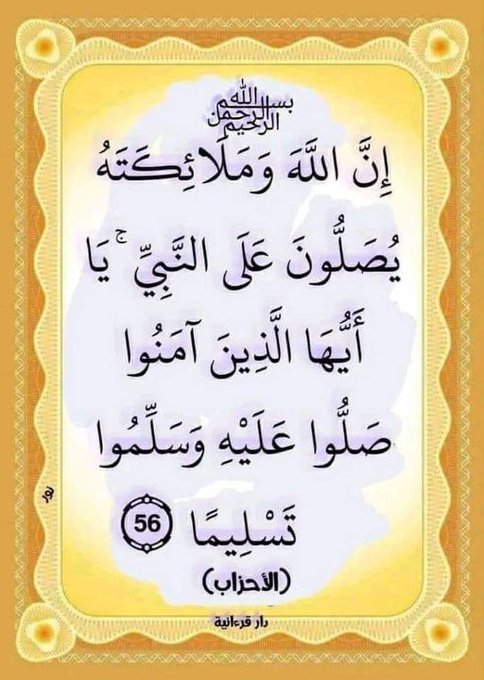 بسم الله الرحمن الرحيم
إِنَّ اللَّهَ وَمَلَائِكَتَهُ
يُصَلُّونَ عَلَى النَّبِيِّ ۚ يَا
أَيُّهَا الَّذِينَ آمَنُوا
صَلُّوا عَلَيْهِ وَسَلِّمُوا
تَسْلِيمًا 56
(الأحزاب)
دار قرءانية
نور